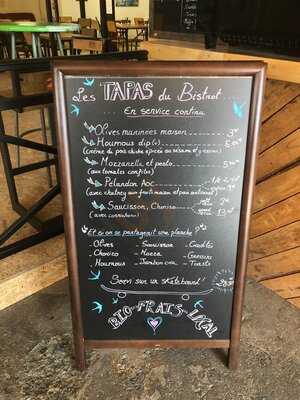 Les TAPAS du Bistrot
En service continu
Olives marinées maison 3€
Houmous dip(s)
(crème de pois chiche épicée au sésame et gressini)
Mozzarella et pesto 5€
(aux tomates confites)
Pelardon AOC
(avec chutney aux fruits maison et pain artisanal)
Saucisson, Chorizo
(avec cornichons)
Et si on se partageait une planche?
- Olives - Saucisson - Crudités
- Chorizo - Mozza - Gressini
- Houmous - Jambon cru - Toasts
Servi sur un skateboard!
BIO-FRAIS-LOCAL